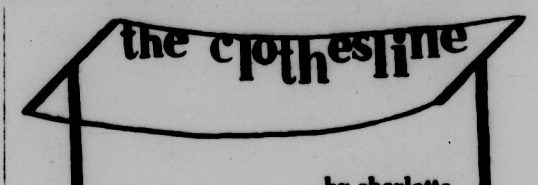 the clothesline
by charlotte